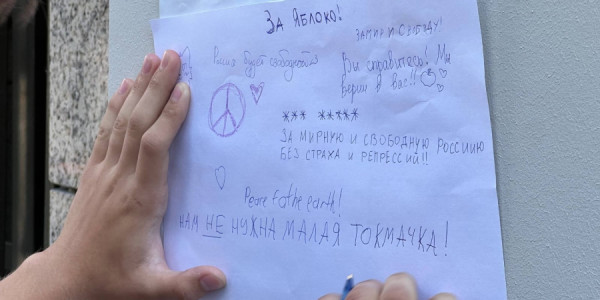 За Яблоко!
ЗА МИР И СВОБОДУ!
Россия будет свободной!
Вы справитесь! Мы
верим в вас!!
*** *****
ЗА МИРНУЮ И СВОБОДНУЮ РОССИЮ
БЕЗ СТРАХА И РЕПРЕССИЙ!!
Peace to the earth!
НАМ НЕ НУЖНА МАЛАЯ ТОКМАЧКА!